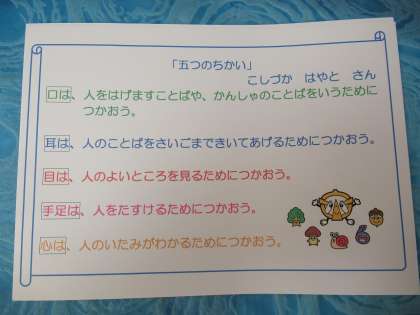 「五つのちかい」
こしづか はやと さん
口は、人をはげますことばや、かんしゃのことばをいうために
つかおう。
耳は、人のことばをさいごまできいてあげるためにつかおう。
目は、人のよいところを見るためにつかおう。
手足は、人をたすけるためにつかおう。
心は、人のいたみがわかるためにつかおう。